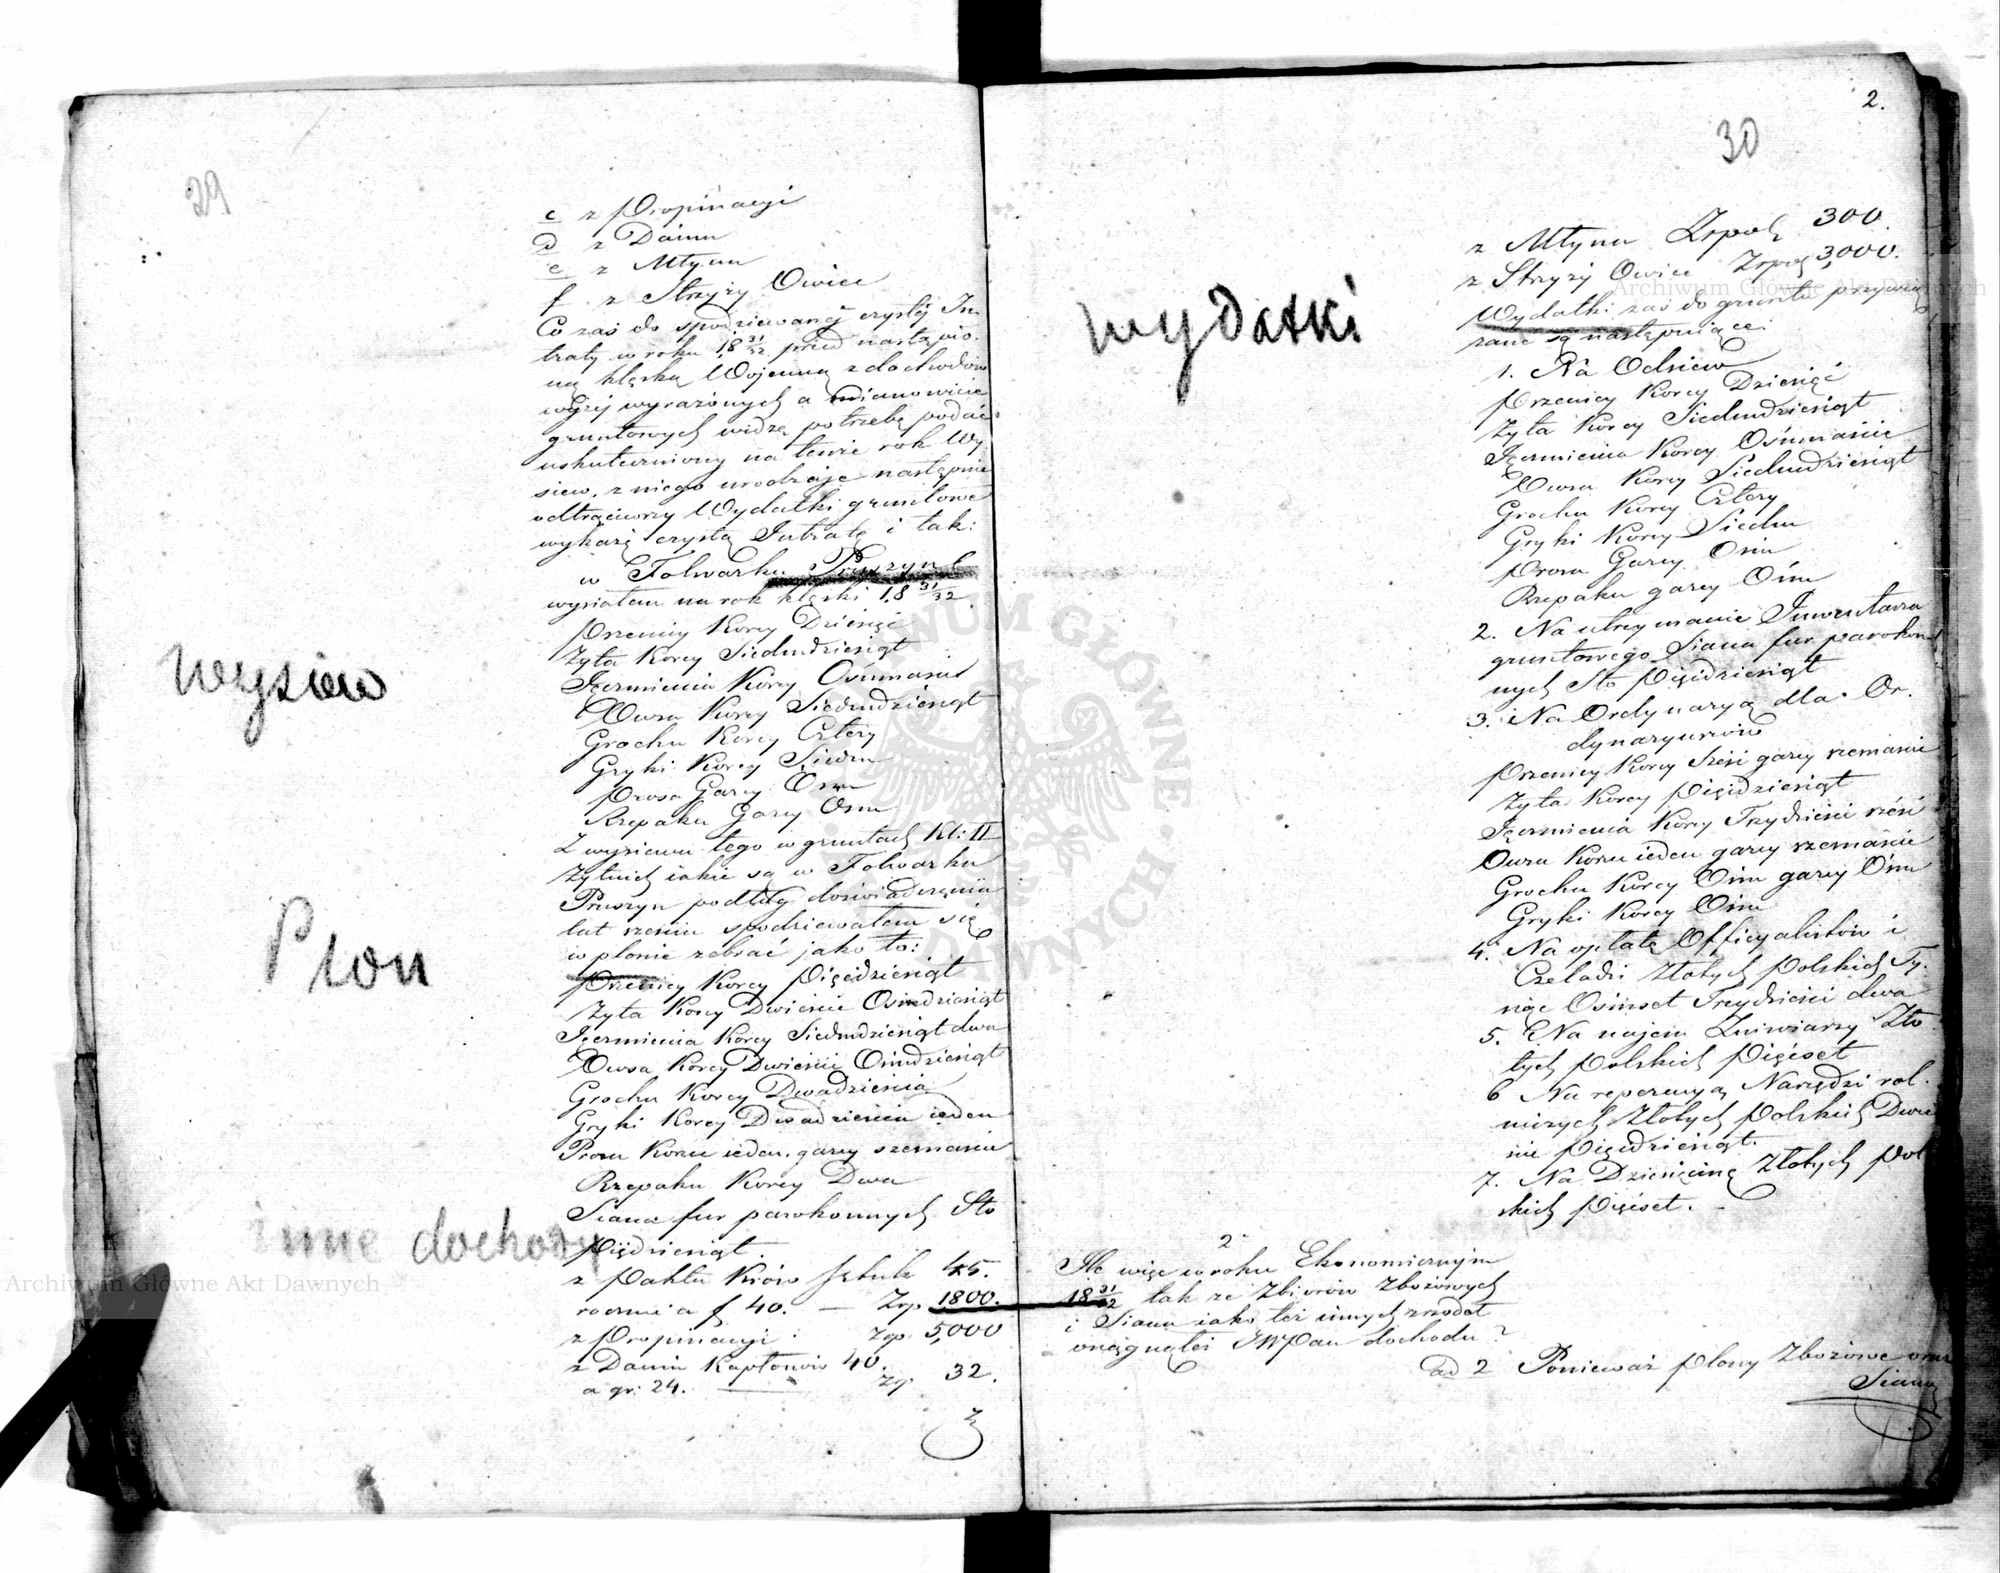 29
c z Propinacyi
d z Danin
e z Młyna
f z Strzyży Owiec
Co zaś do spodziewanéj czystéj In-
traty w roku 18 31/32 przed nastąpio-
ną klęską Wojenną z dochodów
wyżéj wyrażonych a mianowicie
gruntowych widzę potrzebę podać
uskuteczniony na tenże rok Wy
siew, z niego urodzaje następnie
odtrąciwszy Wydatki gruntowe
wykażę czystą Intratę i tak:
w Folwarku Pruszyn
wysiałem na rok klęski 18 31/32
Wysiew
Pszenicy Korcy Dziesięć
Żyta Korcy Siedmdziesiąt
Jęczmienia Korcy Ośmnaście
Owsa Korcy Siedmdziesiąt
Grochu Korcy Cztery
Gryki Korcy Siedm
Prosa Garcy Osm
Rzepaku Garcy Osm
Z wysiewu tego w gruntach Kl: II
Żytnich iakie są w Folwarku
Pruszyn podług doświadczenia
lat spodziewałem się
w plonie zebrać jako to:
Plon
Pszenicy Korcy Pięćdziesiąt
Żyta Korcy Dwieście Ośmdziesiąt
Jęczmienia Korcy Siedmdziesiąt dwa
Owsa Korcy Dwieście Ośmdziesiąt
Grochu Korcy Dwadzieścia
Gryki Korcy Dwadzieścia ieden
Prosa Korzec ieden, garcy szesnaście
Rzepaku Korcy Dwa
Siana fur parokonnych Sto
Pięćdziesiąt.
inne dochody
z Paktu Krów Sztuk 45.
rocznie a f 40. — Złp. 1800.
z Propinacyi : Złp. 5,000
z Danin Kapłonów 40.
a gr: 24. — Zł. 32.
2.
30
z Młyna Złpol. 300.
z Strzyży Owiec Złpol. 3,000.
wydatki
Wydatki zaś do gruntu przywią
zane są następujące:
1. Na Odsiew
Pszenicy Korcy Dziesięć
Żyta Korcy Siedmdziesiąt
Jęczmienia Korcy Ośmnaście
Owsa Korcy Siedmdziesiąt
Grochu Korcy Cztery
Gryki Korcy Siedm
Prosa Garcy Osm
Rzepaku garcy Ośm
2. Na utrzymanie Inwentarza
gruntowego Siana fur parokon
nych Sto Pięćdziesiąt
3. Na Ordynaryą dla Or-
dynaryuszów
Pszenicy Korcy Sześć garcy szesnaście
Żyta Korcy Pięćdziesiąt
Jęczmienia Korcy Trzydzieści sześć
Owsa Korzec ieden garcy szesnaście
Grochu Korcy Ośm garcy Ośm
Gryki Korcy Ośm
4. Na opłatę Officyalistów i
Czeladzi Złotych Polskich Ty-
siąc Ośmset Trzydzieści dwa
5. Na najem Żniwiarzy Zło
tych Polskich Pięćset
6 Na reperacyą Narzędzi rol-
niczych Złotych Polskich Dwie
ście Pięćdziesiąt.
7. Na Dziesięcinę Złotych Pol
skich Pięćset. -
2-
Ile więc w roku Ekonomicznym
18 31/32 tak ze Zbiorów Zbożowych
i Siana iako też innych źródeł
osiągnąłeś JWPan dochodu?
ad 2 Ponieważ Plony Zbożowe oraz
Siana
ARCHIWUM GŁÓWNE AKT DAWNYCH
Archiwum Główne Akt Dawnych
Archiwum Główne Akt Dawnych